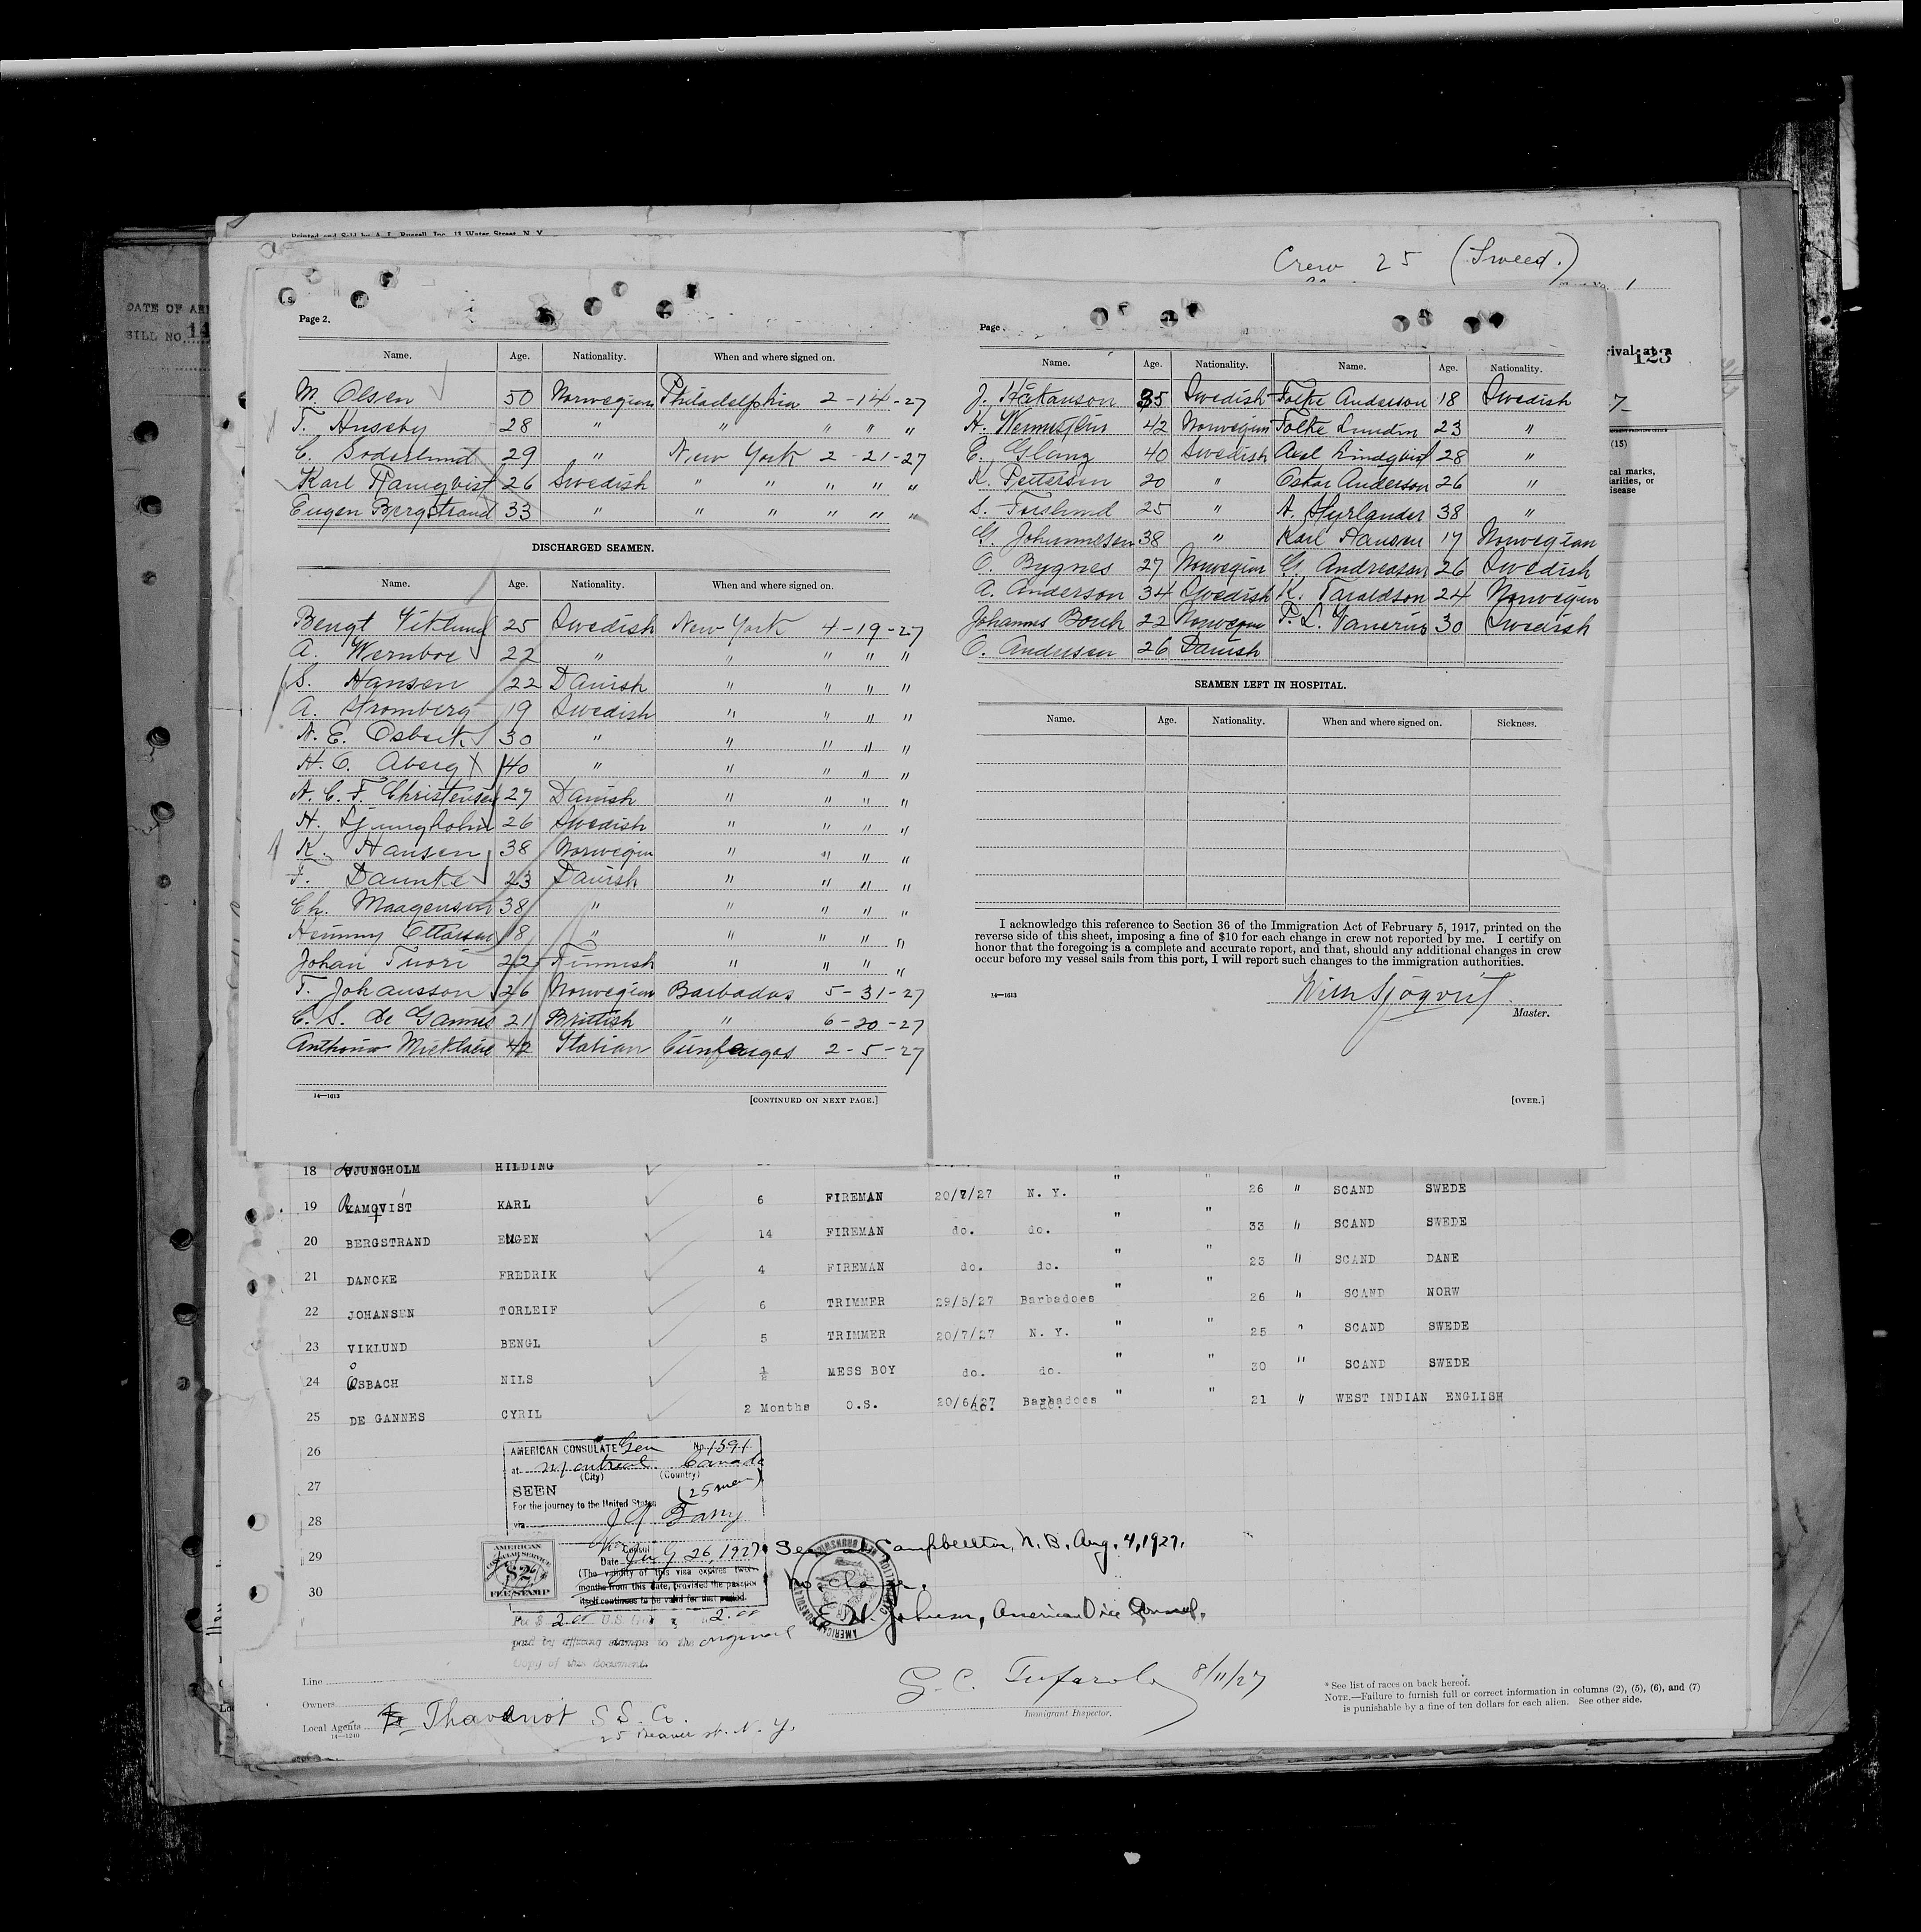 Printed and Sold by A. L. Russell, Inc. 13 Water Street, N. Y.
Crew 25 (Swed.)
DATE OF
BILL NO.
123
Page 2.
Name. Age. Nationality. When and where signed on.
M. Olsen 50 Norwegian Philadelphia 2-14-27
T. Huseby 28 " " " " "
C. Soderlund 29 " New York 2-21-27
Karl Ramqvist 26 Swedish " " " " "
Eugen Bergstrand 33 " " " " " "
DISCHARGED SEAMEN.
Name. Age. Nationality. When and where signed on.
Bengt Viklund 25 Swedish New York 4-19-27
A. Wernboe 22 " " " " "
S. Hansen 22 Danish " " " "
A. Stromberg 19 Swedish " " " "
N. E. Osback 30 " " " " "
H. O. Aberg 40 " " " " "
A. C. F. Christensen 27 Danish " " " "
H. Ljungholm 26 Swedish " " " "
K. Hansen 38 Norwegian " " " "
F. Daunke 23 Danish " " " "
Ch. Maagensen 38 " " " " "
Hemmy Ottosen 18 " " " " "
Johan Tuori 22 Finnish " " " "
T. Johansson 26 Norwegian Barbados 5-31-27
C. S. de Gannes 21 Brittish " 6-20-27
Anthonio Micklaue 42 Italian Cienfuegos 2-5-27
14—1613
[CONTINUED ON NEXT PAGE.]
Page
Name. Age. Nationality. Name. Age. Nationality.
J. Håkanson 35 Swedish Folke Anderson 18 Swedish
H. 42 Norwegian Folke Lundin 23 "
E. Glang 40 Swedish Axel Lindqvist 28 "
K. Pettersen 20 " Oskar Anderson 26 "
S. Forslund 25 " A. Styrlander 38 "
G. Johannesen 38 " Karl Hansen 17 Norwegian
O. Bygnes 27 Norwegian G. Andreasen 26 Swedish
A. Anderson 34 Swedish K. Taraldson 24 Norwegian
Johannes Bouk 22 Norwegian F. L. Vanerius 30 Swedish
O. Andresen 26 Danish
SEAMEN LEFT IN HOSPITAL.
Name. Age. Nationality. When and where signed on. Sickness.
I acknowledge this reference to Section 36 of the Immigration Act of February 5, 1917, printed on the
reverse side of this sheet, imposing a fine of $10 for each change in crew not reported by me. I certify on
honor that the foregoing is a complete and accurate report, and that, should any additional changes in crew
occur before my vessel sails from this port, I will report such changes to the immigration authorities.
14—1613
Wilh Sjöqvist
Master.
[OVER.]
(15)
18 LJUNGHOLM HILDING
19 RAMQVIST KARL 6 FIREMAN 20/7/27 N. Y. " " 26 " SCAND SWEDE
20 BERGSTRAND EUGEN 14 FIREMAN do. do. " " 33 " SCAND SWEDE
21 DANCKE FREDRIK 4 FIREMAN do. do. " " 23 " SCAND DANE
22 JOHANSEN TORLEIF 6 TRIMMER 29/5/27 Barbadoes " " 26 " SCAND NORW
23 VIKLUND BENGL 5 TRIMMER 20/7/27 N. Y. " " 25 " SCAND SWEDE
24 OSBACH NILS ½ MESS BOY do. do. " " 30 " SCAND SWEDE
25 DE GANNES CYRIL 2 Months O.S. 20/6/27 Barbadoes " " 21 " WEST INDIAN ENGLISH
26
27
28
29
30
AMERICAN CONSULATE Gen No. 1591
at Montreal Canada
(City) (Country)
SEEN (25 men)
For the journey to the United States
via
Consul
Date July 26, 1927
(The validity of this visa expires twelve
months from this date, provided the passport
itself continues to be valid for that period.
AMERICAN
CONSULAR SERVICE
$2
FEE STAMP
Fee $ 2.00 U.S. 2.00
paid by affixing stamps to the original
Copy of this document.
Seen at Campbellton, N. B. Aug. 4, 1927.
No change.
Johnson, American Vice Consul.
Line
Owners
Local Agents Thavenot S. S. Co.
25 Beaver st. N. Y.
14—1240
8/11/27
Immigrant Inspector.
* See list of races on back hereof.
NOTE.—Failure to furnish full or correct information in columns (2), (5), (6), and (7)
is punishable by a fine of ten dollars for each alien. See other side.